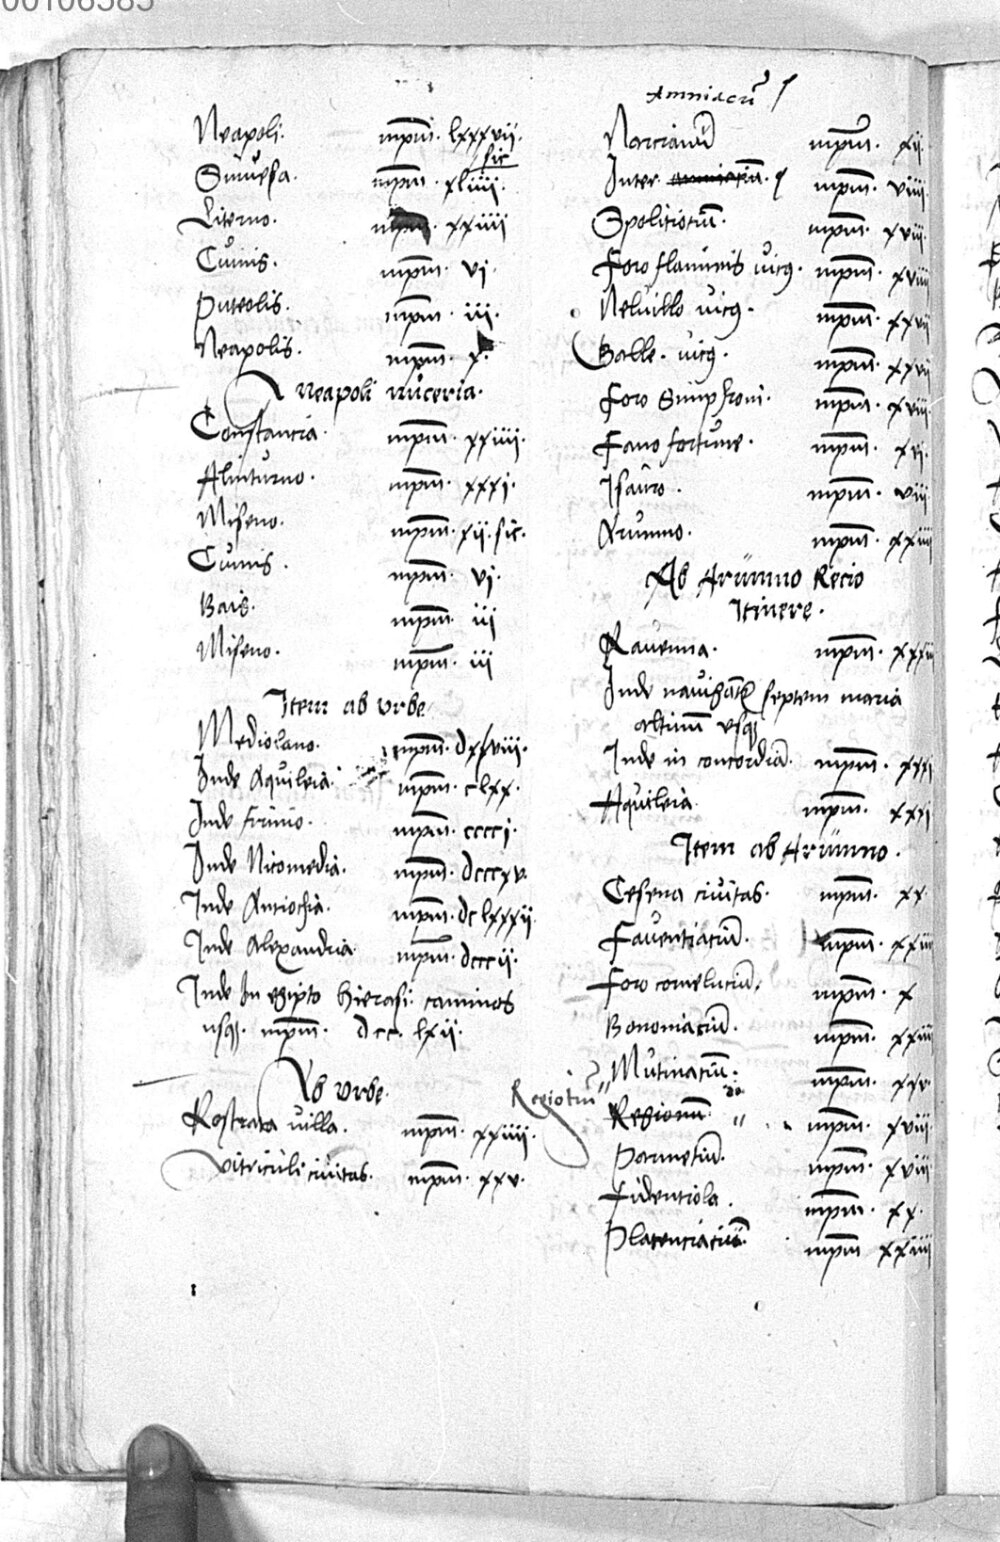 00106585
Neapoli. mpm. lxxxvii.
Sinuesa. mpm. xliiii. sic
Literno. mpm. xxiiii
Cumis. mpm. vi.
Puteolis. mpm. iii.
Neapolis. mpm. x.
A neapoli nuceria.
Constancia. mpm. xxiiii.
Alinturno. mpm. xxxi.
Miseno. mpm. xii. sic.
Cumis. mpm. vi.
Bais. mpm. iii
Miseno. mpm. iii
Item ab urbe
Mediolano. mpm. dxxviii.
Inde Aquileia. mpm. clxx.
Inde firmio. mpm. cccci.
Inde Nicomedia. mpm. dcccxv.
Inde Antiochia. mpm. dclxxxii.
Inde Alexandria mpm. dcccii.
Inde In egipto hierasi caminos
usq. mpm. dcc. lxii.
Ab urbe.
Rostrata villa. mpm. xxiiii.
Vtriculi civitas. mpm. xxv.
Amniacū
Narcianū mpm. xii.
Inter mpm. viiii.
Spolitiotiū. mpm. xviii.
Foro flaminis vicq. mpm. xviiii
Nelvillo vicq. mpm. xxvii
Galle. vicq. mpm. xxvii
Foro Simphroni. mpm. xviii
Fano fortune. mpm. xvi.
Isauro. mpm. viii
Arimino. mpm. xxiiii
Ab Arimino Recio
Itinere.
Ravenna. mpm. xxxiii
Inde navigātr septem maria
altinū usq
Inde in concordiā. mpm. xxxi
Aquileia mpm. xxxi
Item ab Arimino.
Cesena civitas. mpm. xx.
Faventiaciū. mpm. xxiiii
Foro corneluciū. mpm. x
Bononiaciū. mpm. xxiiii
Mutinaciū. mpm. xxv.
Regiotiū Regionū mpm. xviii
Parmetiū. mpm. xviii
Fidentiola. mpm. xx.
Placentiaciū. mpm xxiiii